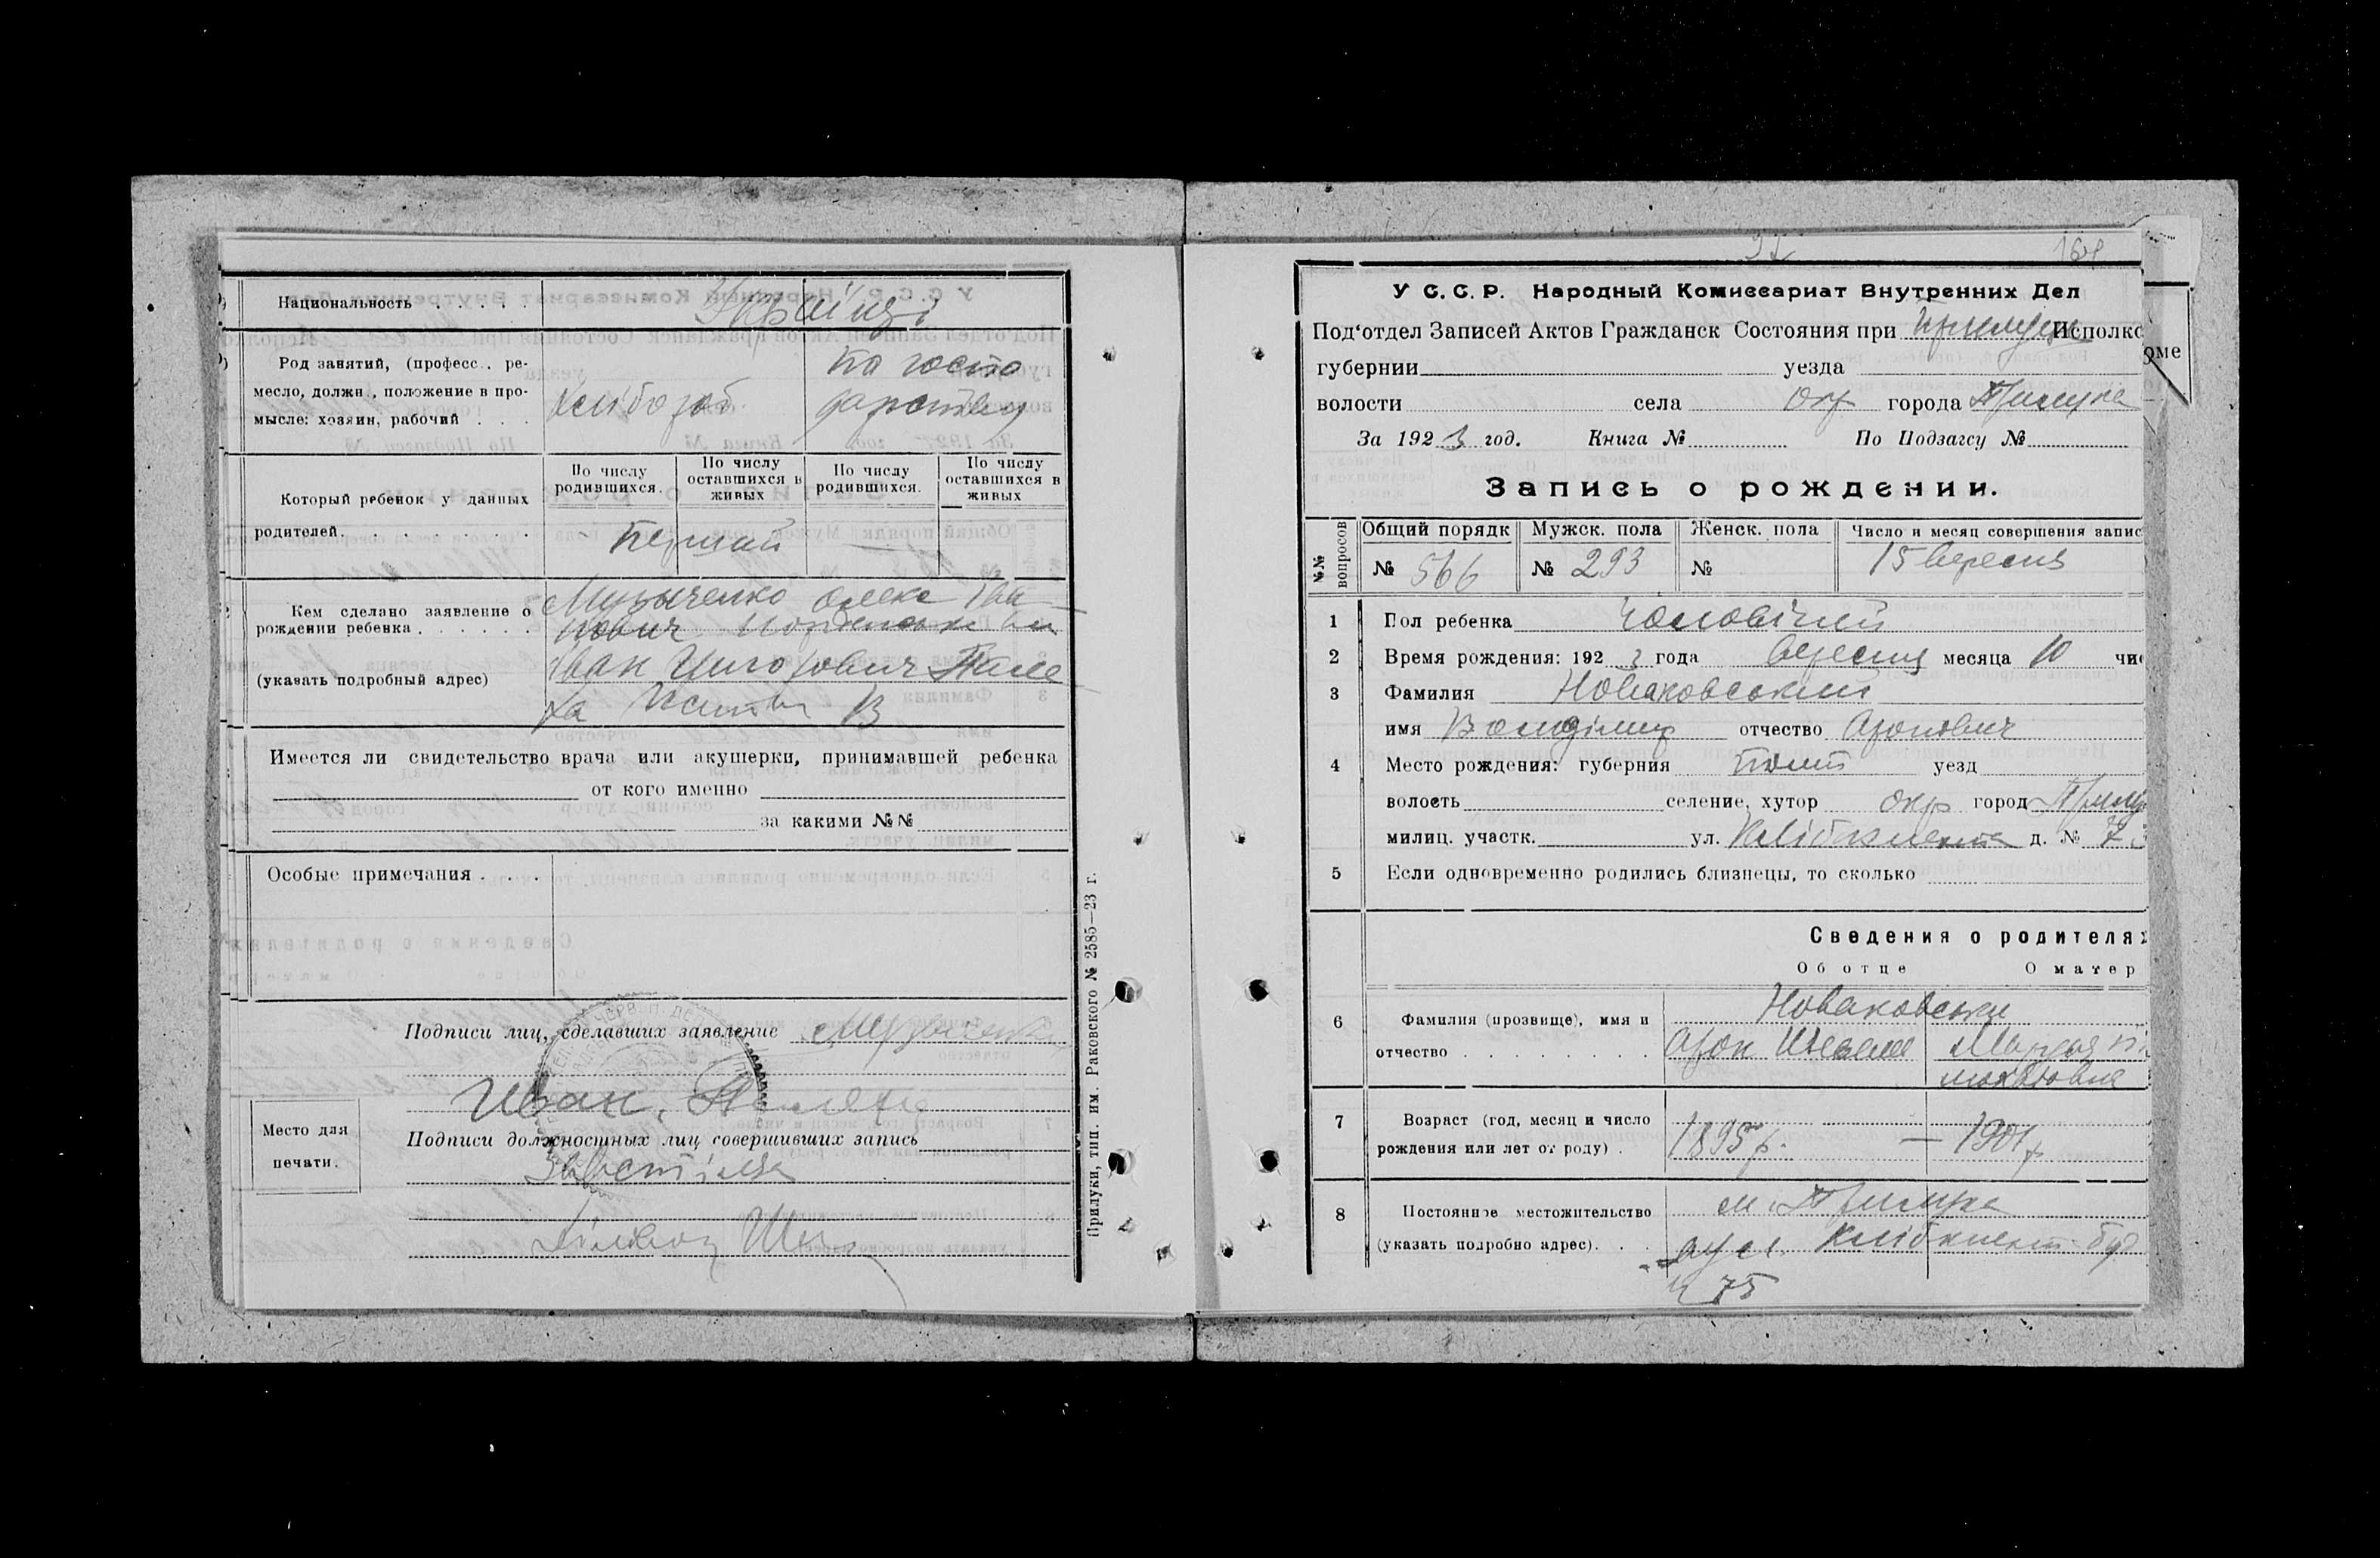 Национальность . . . . . Українці
Род занятий, (професс., ре-
месло, должн., положение в про-
мысле: хозяин, рабочий . . .
Хлібороб
по госпо
дарству
Который ребенок у данных
родителей. . . . . . . .
По числу родившихся.
По числу оставшихся в живых
По числу родившихся.
По числу оставшихся в живых
Перший
—
Кем сделано заявление о
рождении ребенка . . . . . .
(указать подробный адрес)
Музыченко Олекс Іва
нович
Іван
Имеется ли свидетельство врача или акушерки, принимавшей ребенка
от кого именно
за какими №№
Особые примечания . . .
Подписи лиц, сделавших заявление Музыченко
Иван
Место для
печати.
Подписи должностных лиц совершивших запись
Прилуки, тип. им. Раковского № 2585—23 г.
164
У С. С. Р. Народный Комиссариат Внутренних Дел
Под'отдел Записей Актов Гражданск Состояния при Прилуцк Исполко
оме
губернии уезда
волости села окр города Прилука
За 1923 год. Книга № По Подзагсу №
Запись о рождении.
№№ вопросов
Общий порядк
Мужск. пола
Женск. пола
Число и месяц совершения запис
№ 566
№ 293
№
15 вересня
1 Пол ребенка Чоловічий
2 Время рождения: 1923 года вересня месяца 10 чис
3 Фамилия Новаковський
имя Володімир отчество Аронович
4 Место рождения: губерния Полт уезд
волость селение, хутор окр город Прилу
милиц. участк. ул. д. № 7
5 Если одновременно родились близнецы, то сколько
Сведения о родителях
Об отце О матер
6 Фамилия (прозвище), имя и
отчество . . . . . . . .
Новаковськи
Арон
7 Возраст (год, месяц и число
рождения или лет от роду) .
1895 р. — 1901 р
8 Постоянное местожительство
(указать подробно адрес). . .
м. Прилука
вул. буд
ч 75